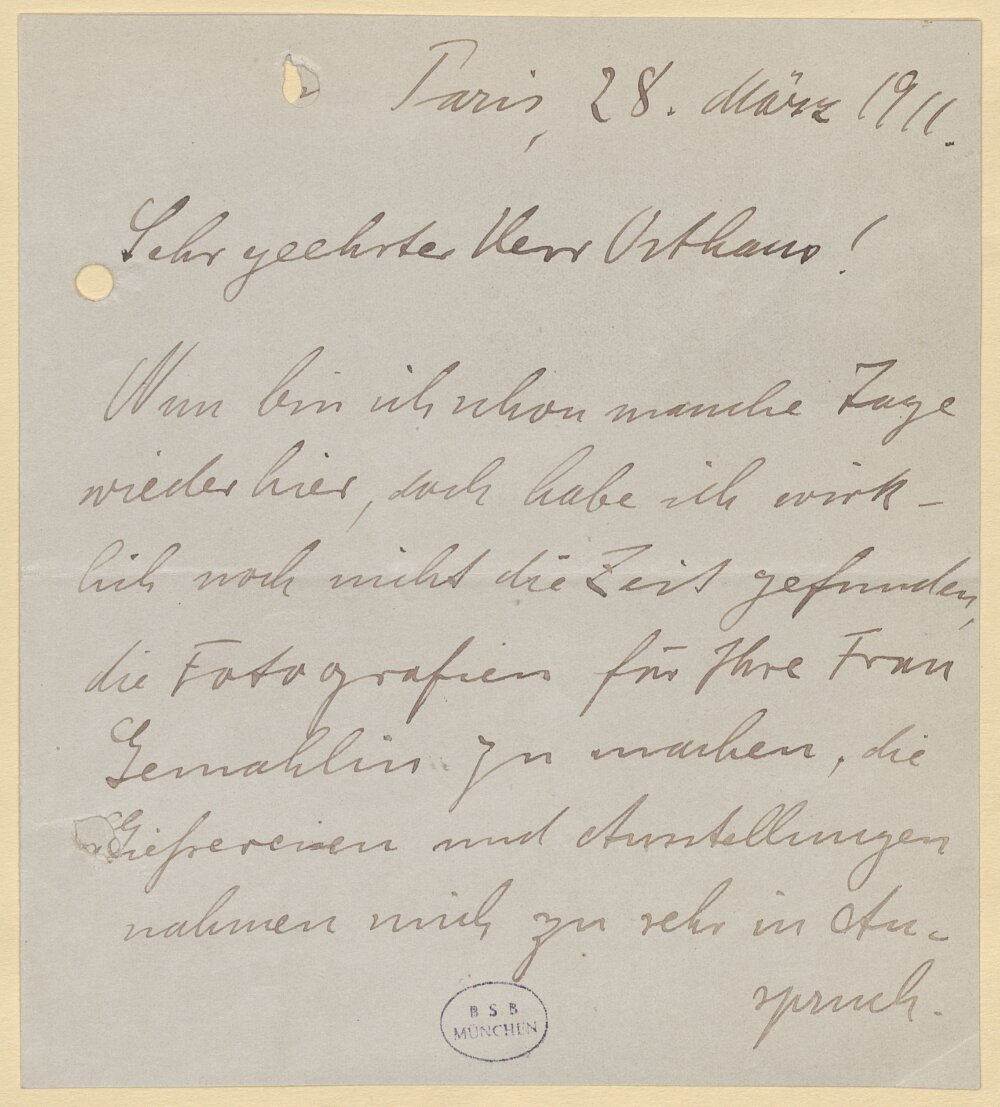 Paris, 28. März 1911.
Sehr geehrter Herr Osthaus!
Nun bin ich schon manche Tage
wieder hier, doch habe ich wirk-
lich noch nicht die Zeit gefunden,
die Fotografien für Ihre Frau
Gemahlin zu machen, die
Gießereien und Ausstellungen
nahmen mich zu sehr in An-
spruch.
BSB
MÜNCHEN